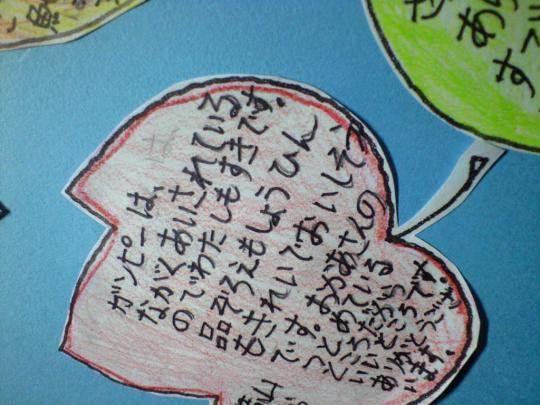 ガンピーは、
ながくあいされている
のでわたしもすきです。
品ぞろえもしょうひん
もきれいでおいしそう
です。おかあさんの
つとめている
ところだから
いいところです。
ありがとうござ
います。